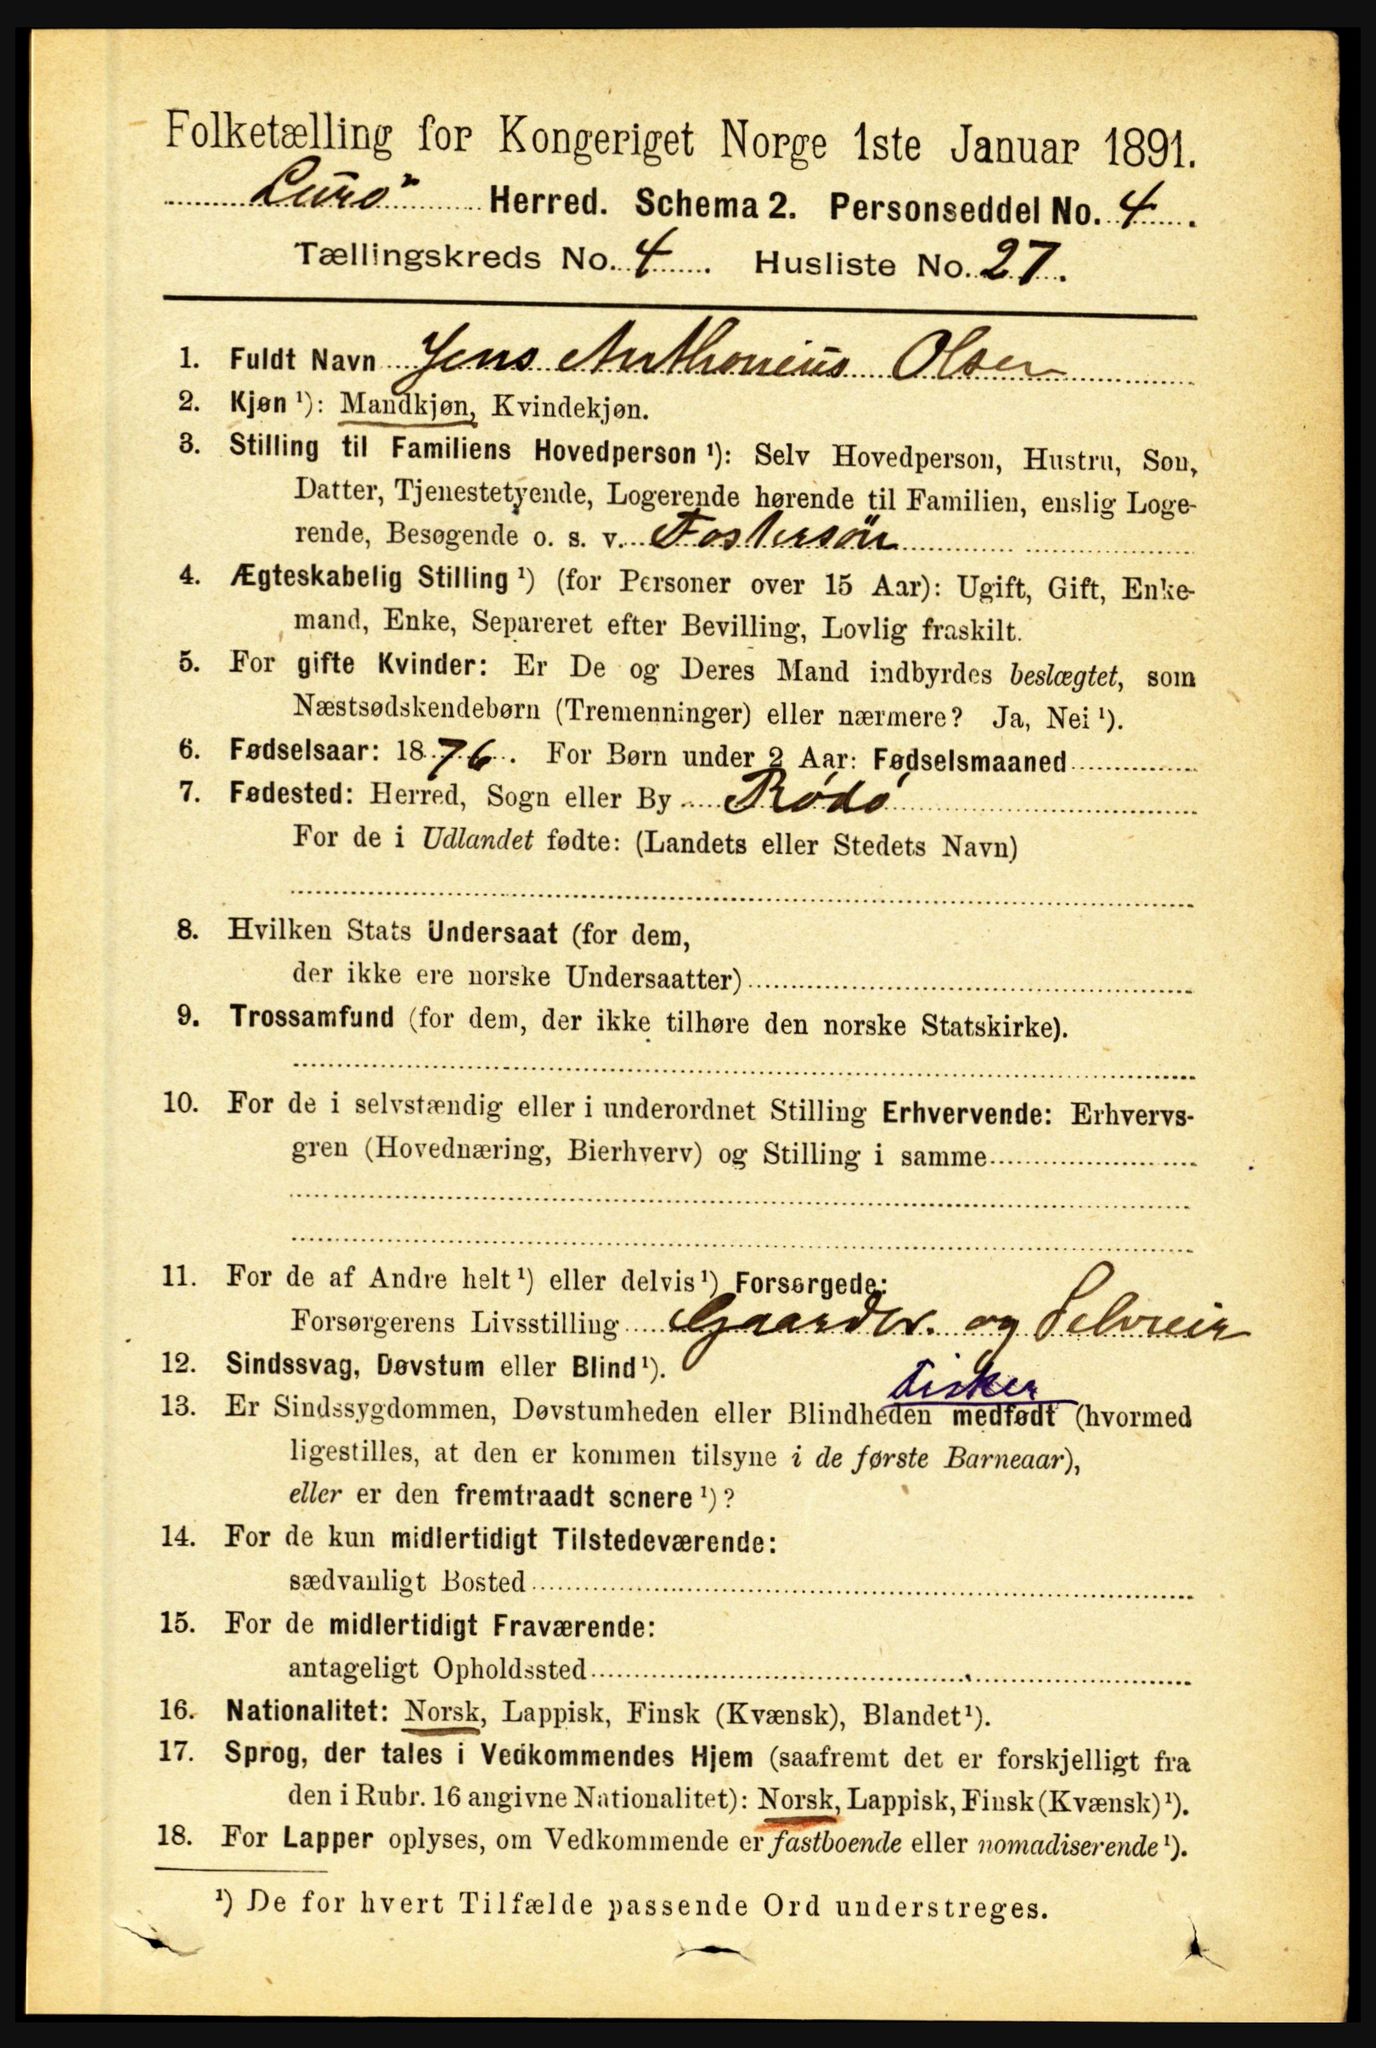 Folketælling for Kongeriget Norge 1ste Januar 1891.
Lurø Herred. Schema 2. Personseddel No. 4.
Tællingskreds No. 4. Husliste No. 27.
1. Fuldt Navn Jens Anthonius Olsen
2. Kjøn ¹): Mandkjøn, Kvindekjøn.
3. Stilling til Familiens Hovedperson ¹): Selv Hovedperson, Hustru, Søn,
Datter, Tjenestetyende, Logerende hørende til Familien, enslig Loge-
rende, Besøgende o. s. v. Fostersøn
4. Ægteskabelig Stilling ¹) (for Personer over 15 Aar): Ugift, Gift, Enke-
mand, Enke, Separeret efter Bevilling, Lovlig fraskilt.
5. For gifte Kvinder: Er De og Deres Mand indbyrdes beslægtet, som
Næstsødskendebørn (Tremenninger) eller nærmere? Ja, Nei ¹).
6. Fødselsaar: 1876. For Børn under 2 Aar: Fødselsmaaned
7. Fødested: Herred, Sogn eller By Rødø
For de i Udlandet fødte: (Landets eller Stedets Navn)
8. Hvilken Stats Undersaat (for dem,
der ikke ere norske Undersaatter)
9. Trossamfund (for dem, der ikke tilhøre den norske Statskirke).
10. For de i selvstændig eller i underordnet Stilling Erhvervende: Erhvervs-
gren (Hovednæring, Bierhverv) og Stilling i samme
11. For de af Andre helt ¹) eller delvis ¹) Forsørgede:
Forsørgerens Livsstilling Gaardbr. og Selveier
12. Sindssvag, Døvstum eller Blind ¹).
Fisker
13. Er Sindssygdommen, Døvstumheden eller Blindheden medfødt (hvormed
ligestilles, at den er kommen tilsyne i de første Barneaar),
eller er den fremtraadt senere ¹)?
14. For de kun midlertidigt Tilstedeværende:
sædvanligt Bosted
15. For de midlertidigt Fraværende:
antageligt Opholdssted
16. Nationalitet: Norsk, Lappisk, Finsk (Kvænsk), Blandet ¹).
17. Sprog, der tales i Vedkommendes Hjem (saafremt det er forskjelligt fra
den i Rubr. 16 angivne Nationalitet): Norsk, Lappisk, Finsk (Kvænsk) ¹).
18. For Lapper oplyses, om Vedkommende er fastboende eller nomadiserende ¹).
¹) De for hvert Tilfælde passende Ord understreges.